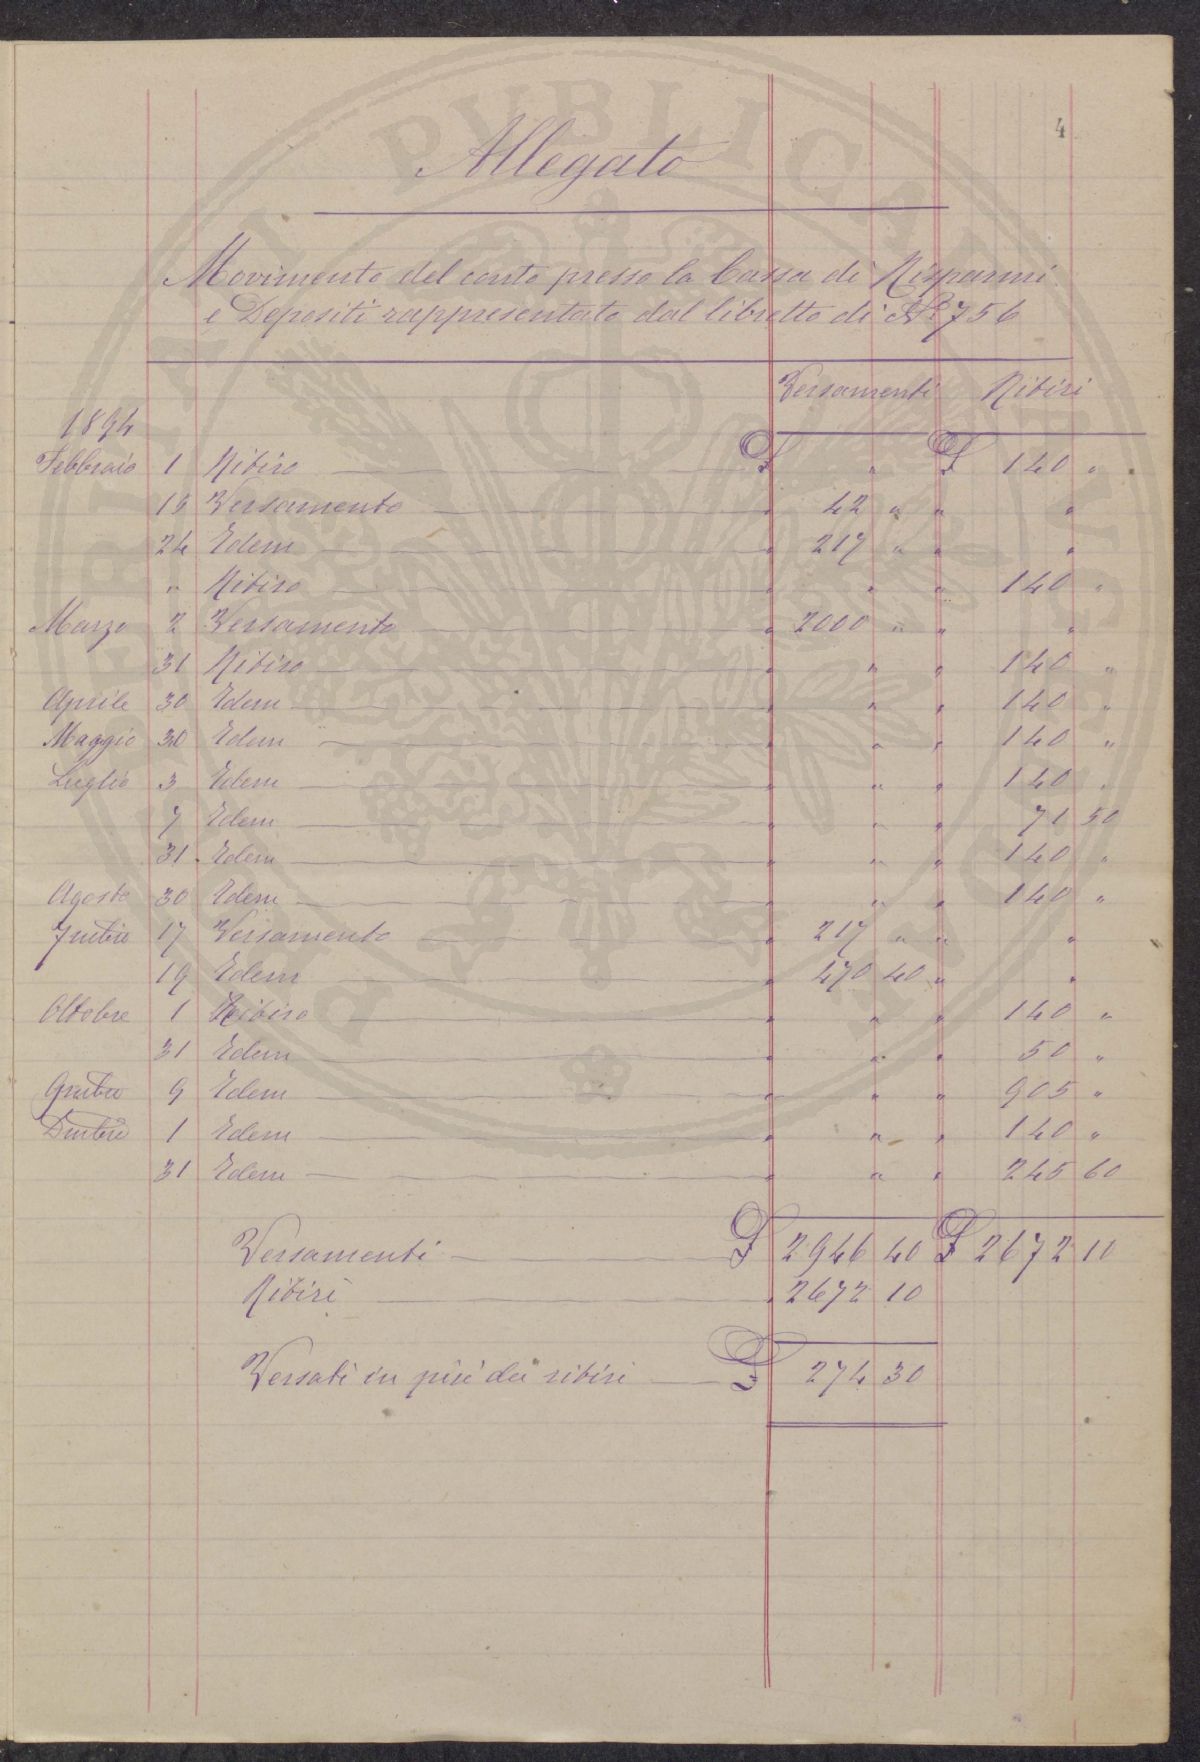 4
Allegato
Movimento del conto presso la Cassa di Risparmi
e Depositi rappresentato dal libretto di No 756
Versamenti Ritiri
1894
Febbraio 1 Ritiro £ " £ 140 "
15 Versamento " 42 " " "
24 Edem " 217 " " "
" Ritiro " " " 140 "
Marzo 2 Versamento " 2000 " " "
31 Ritiro " " 140 "
Aprile 30 Edem " " " 140 "
Maggio 30 Edem " " " 140 "
Luglio 3 Edem " " " 140 "
7 Edem " " " 71 50
31 Edem " " " 140 "
Agosto 30 Edem " " " 140 "
17 Versamento " 217 " " "
19 Edem " 470 40 " "
Ottobre 1 Ritiro " " " 140 "
31 Edem " " " 50 "
9 Edem " " " 905 "
1 Edem " " " 140 "
31 Edem " " " 245 60
Versamenti £ 2946 40 £ 2672 10
Ritiri " 2672 10
Versati in più dei ritiri £ 274 30